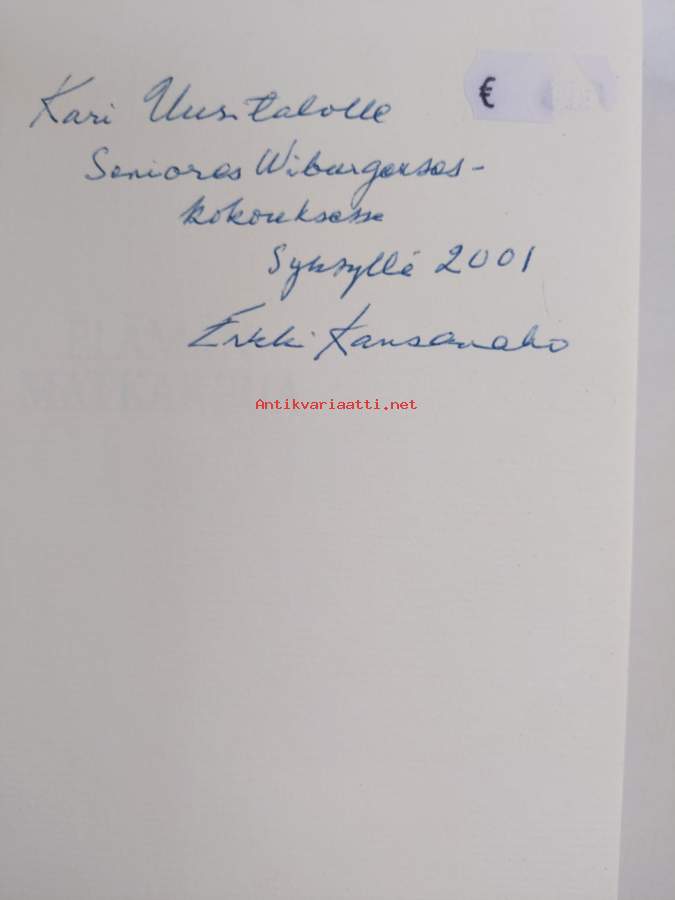 Kari Uusitalolle
€
Seniores Wiburgenses-
kokouksessa
Syksyllä 2001
Erkki Kansanaho
Antikvariaatti.net